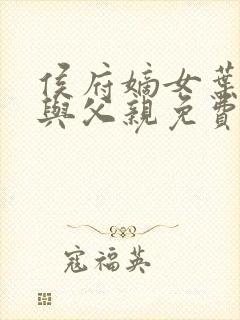 侯府嫡女葉
與父親免費
寇福英